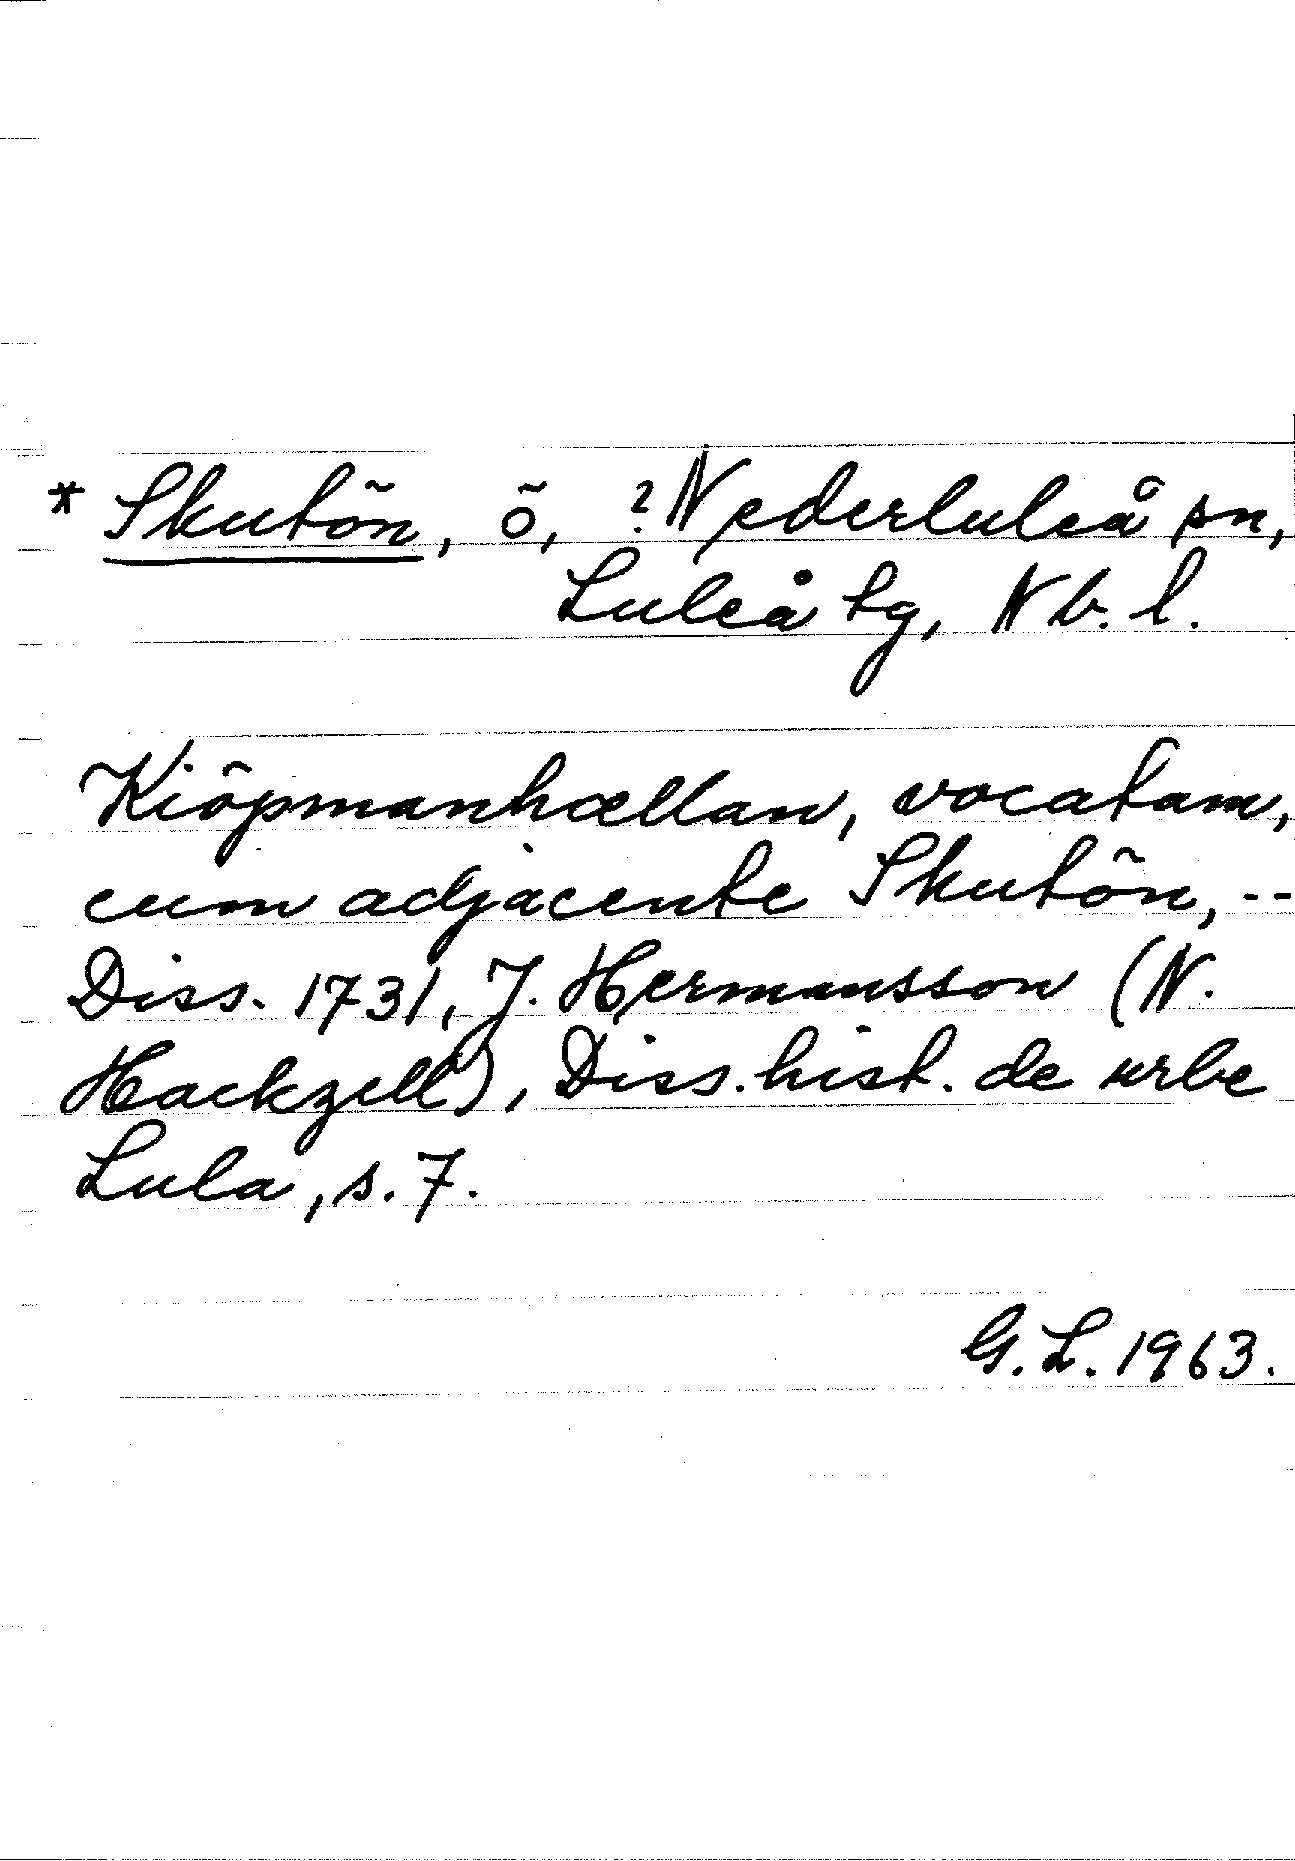 * Skutön, ö, ? Nederluleå sn,
Luleå tg, Nb. l.
Kiöpmanhællan, vocatam,
cum adjacente Skutön, --
Diss. 1731, J. Hermansson (N.
Hackzell), Diss. hist. de urbe
Lula, s. 7.
G. L. 1963.